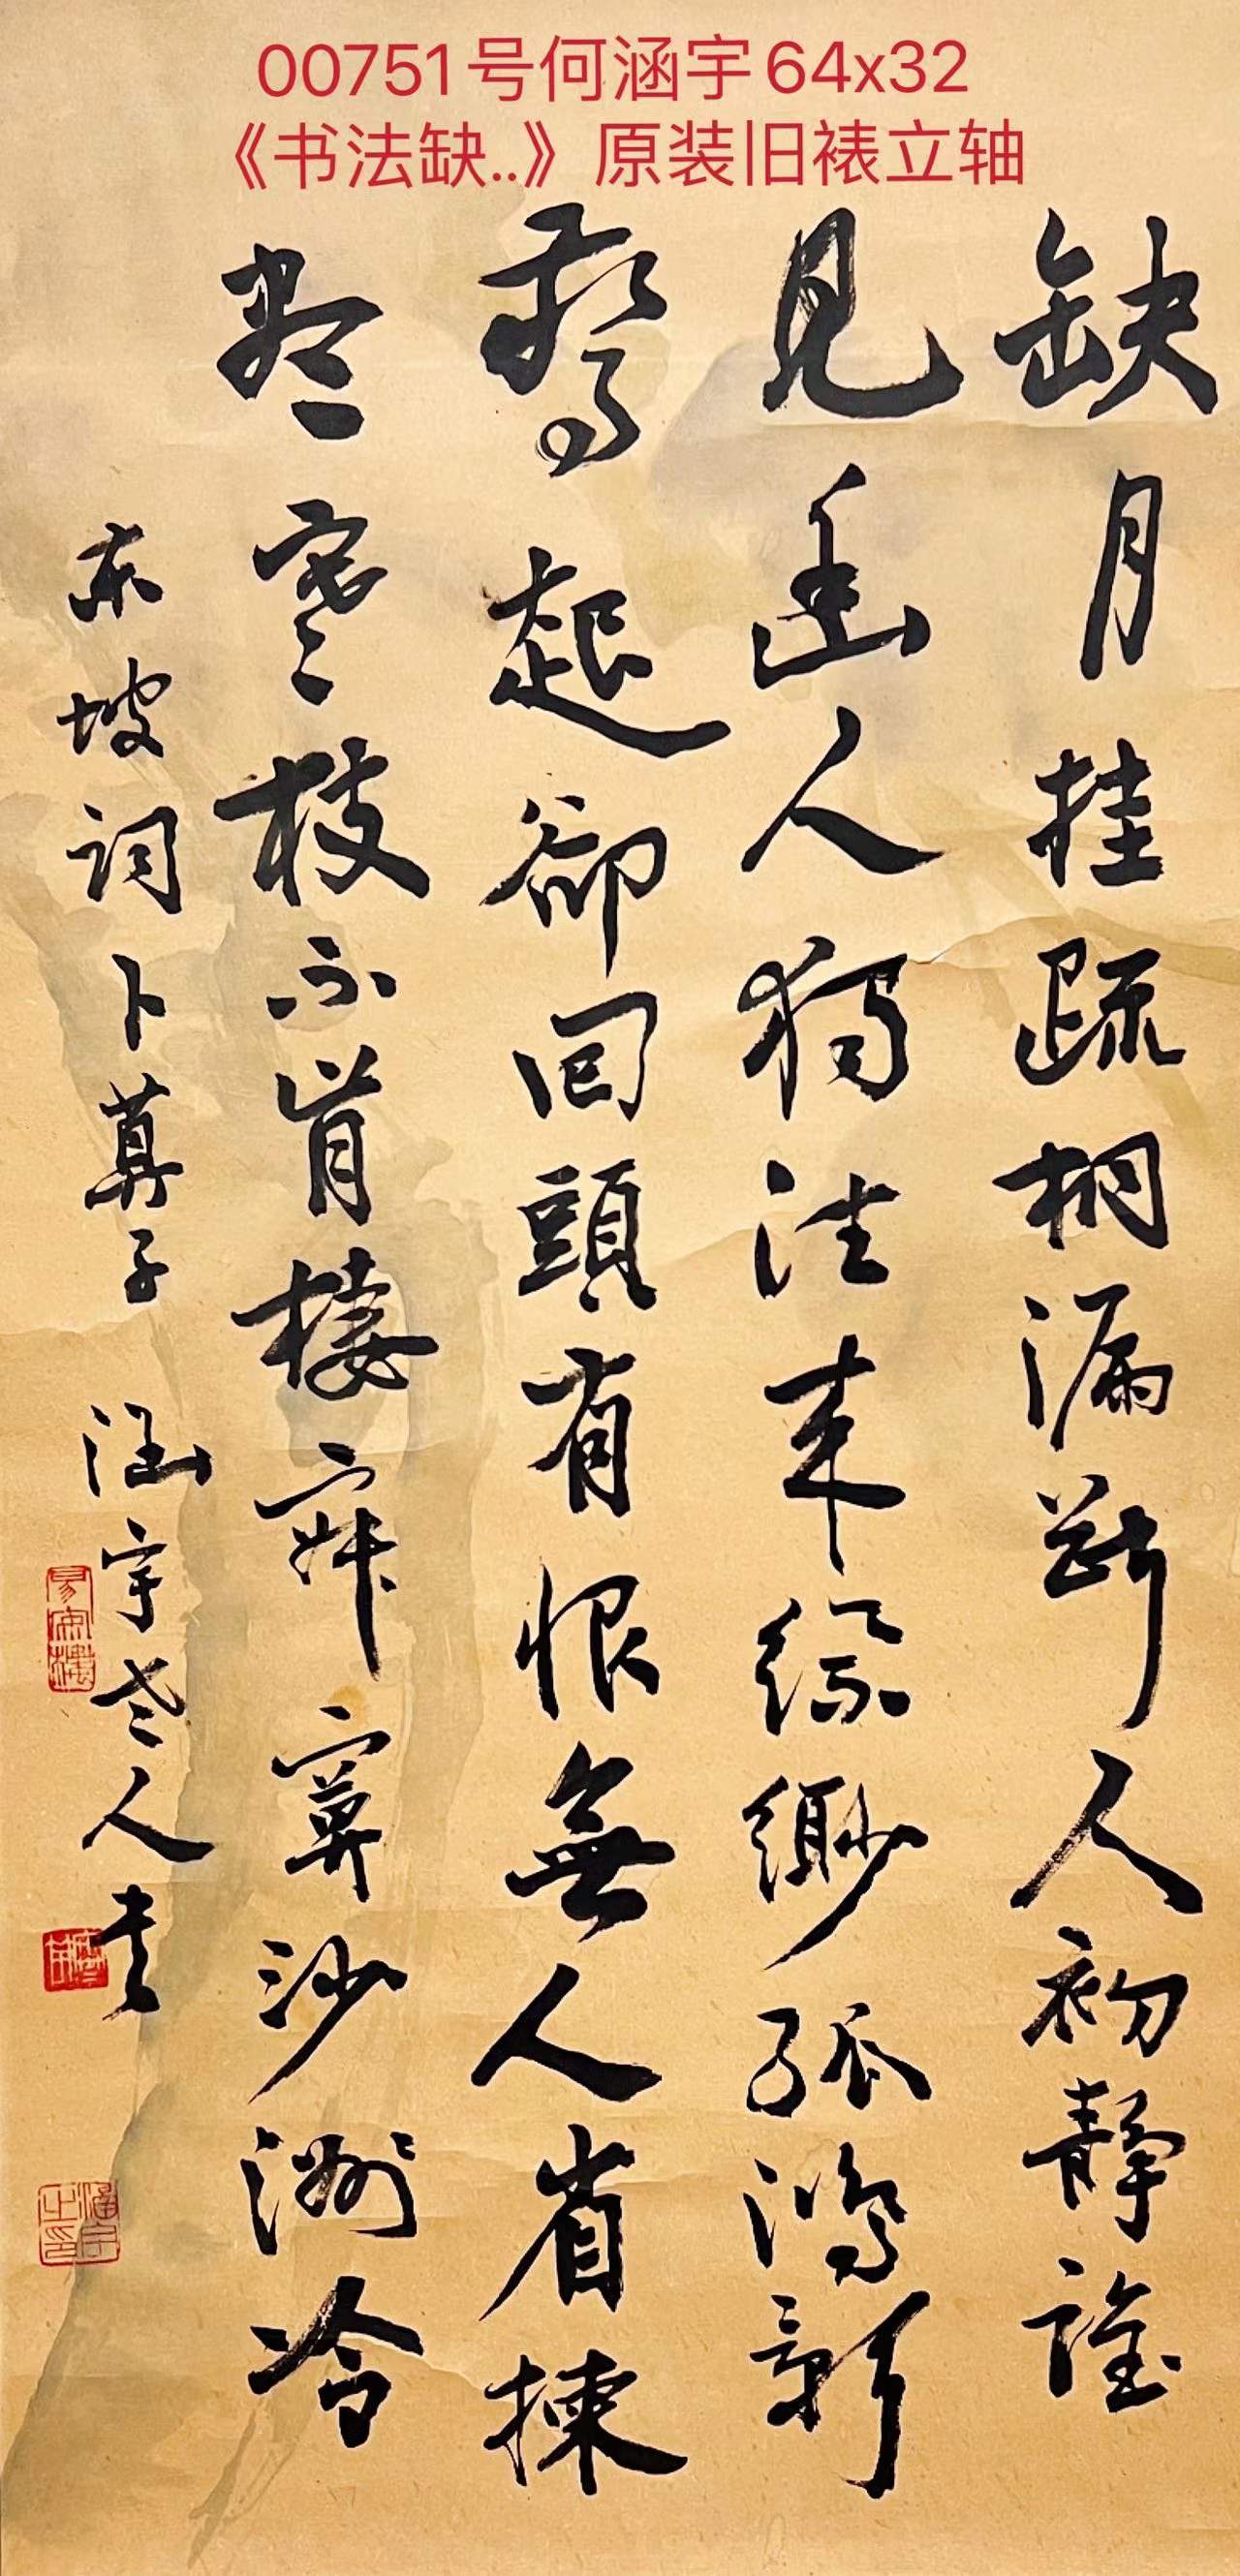 00751号何涵宇64x32
《书法缺..》原装旧裱立轴
缺月挂疏桐漏断人初静誰
見幽人独往来缥緲孤鴻影
驚起卻回頭有恨無人省揀
尽寒枝不肯棲寂寞沙洲冷
东坡词卜算子 涵宇老人书
涵宇之印